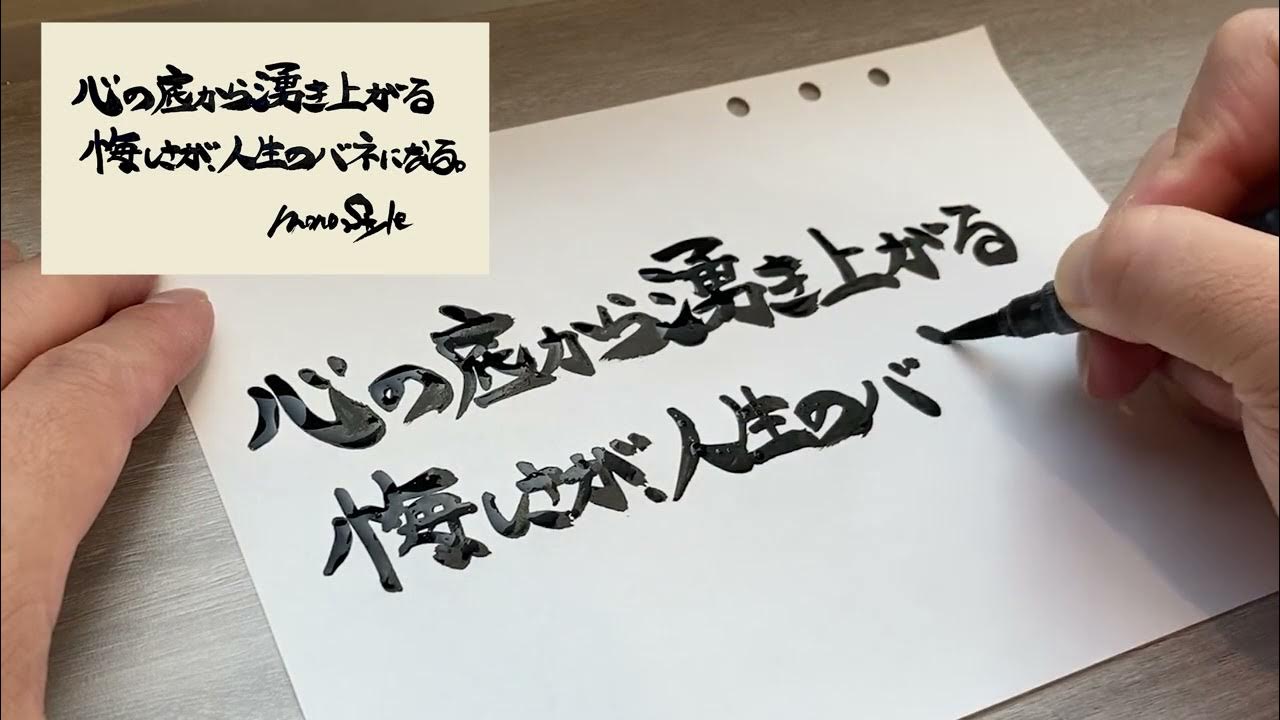 心の底から湧き上がる
悔しさが、人生のバネになる。
monoStyle
心の底から湧き上がる
悔しさが、人生のバ